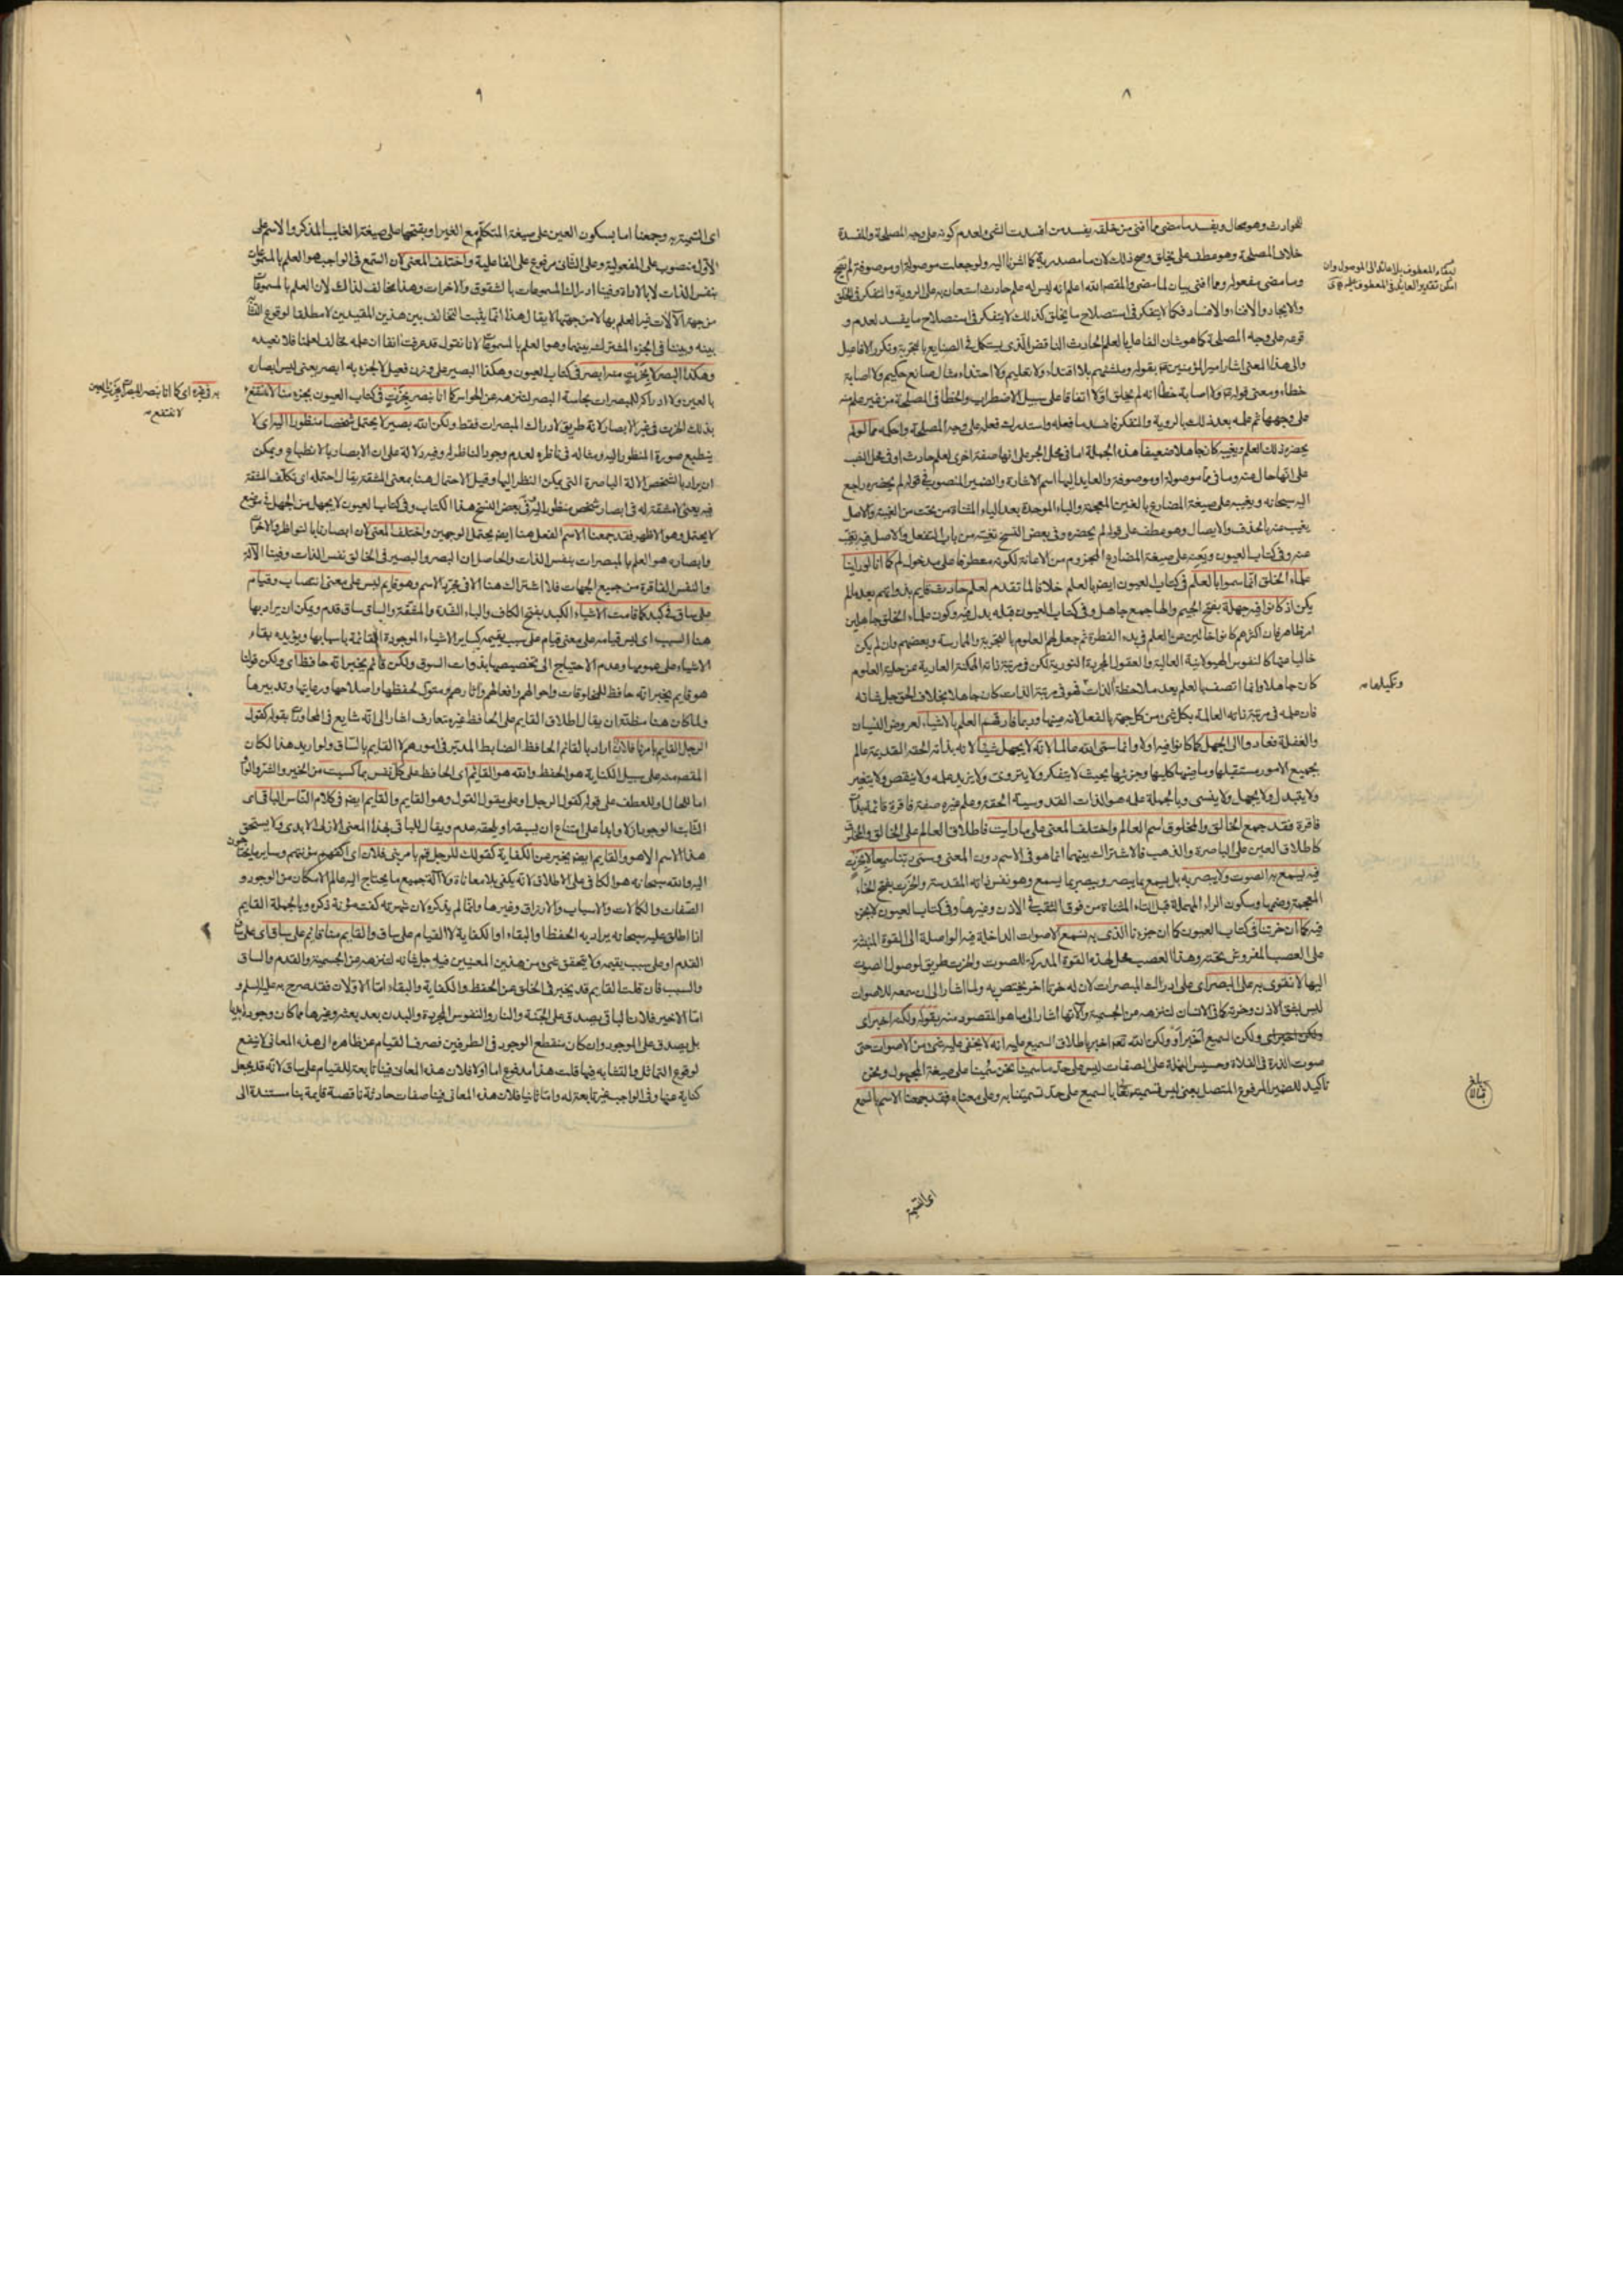 ٨
للحوادث وهو محال ويفسد ما مضى مما افنى من خلقه يفسد من افسدت الشئ لعدم كونه على وجه المصلحة والمفسدة
خلاف المصلحة وهو عطف على يخلق وصح ذلك لان ما مصدرية كما اشرنا اليه ولو جعلت موصولة او موصوفة لم يصح
وما مضى مفعوله ومما افنى بيان لما مضى والمقصد انه اعلم انه ليس له علم حادث استعان به على الروية والتفكر فى الخلق
والايجاد والافناء والافساد فكما لا يتفكر فى استصلاح ما يخلق كذلك لا يتفكر فى استصلاح ما يفسد لعدم و
قوعه على وجه المصلحة كما هو شان الفاعل بالعلم الحادث الناقص الذى يستكمل فى الصنايع بالتجربة وتكرر الافاعيل
والى هذا المعنى اشار امير المؤمنين بقوله بلا اقتداء ولا تعليم ولا احتذاء مثال صانع حكيم ولا اصابة
خطاء ومعنى قوله ولا اصابة خطأ انه لم يخلق اولا اتفاقا على سبيل الاضطراب والخطأ فى المصلحة من غير علم منه
على وجهها ثم علمه بعد ذلك بالروية والتفكر فافسد ما فعله واستدرك فعله على وجه المصلحة واحكمه مما لو لم
يحضره ذلك العلم ويغيبه كان جاهلا ضعيفا هذه الجملة اما فى محل الجر على انها صفة اخرى لعلم حادث او فى محل النصب
على انها حال عنه وما فى مما موصولة او موصوفة والعايد اليها اسم الاشارة والضمير المنصوب فى قوله لم يحضره راجع
اليه سبحانه ويغيبه على صيغة المضارع بالغين المعجمة والباء الموحدة بعد الياء المثناة من تحت من الغيبة والاصل
يغيب عنه بالحذف والايصال وهو عطف على قوله لم يحضره وفى بعض النسخ تغيبه من باب التفعل والاصل فيه تغيب
عنه وفى كتاب العيون ويعنه على صيغة المضارع المجزوم من الاعانة لكونه معطوفا على مدخول لم كما انا لو راينا
علماء الخلق انما سموا بالعلم فى كتاب العيون ايضا بالعلم خلافا لما تقدم لعلم حادث قايم بذواتهم بعد ما لم
يكن اذ كانوا فيه جهلة بفتح الجيم والهاء جمع جاهل وفى كتاب العيون قبله بدل فيه وكون علماء الخلق جاهلين
امر ظاهر فان اكثرهم كانوا خالين عن العلم فى بدء الفطرة ثم حصل لهم العلوم بالتجربة والممارسة وبعضهم وان لم يكن
خاليا عنها كالنفوس الهيولانية العالية والعقول المجردة النورية لكن فى مرتبة ذاته الممكنة العارية عن حلية العلوم
كان جاهلا وانما اتصف بالعلم بعد ملاحظة الذات فهو فى مرتبة الذات كان جاهلا بخلاف الحق جل شانه
فان علمه فى مرتبة ذاته العالمة بكل شئ من كل جهة بالفعل لانه عينها وربما فارقهم العلم بالاشياء لعروض النسيان
والغفلة فعادوا الى الجهل كما كانوا فيه اولا وانما سمى الله عالما لانه لا يجهل شيئا لانه بذاته الحقة القديمة عالم
بجميع الامور مستقبلها وماضيها كليها وجزئيها بحيث لا يتفكر ولا يتروى ولا يزيد علمه ولا ينقص ولا يتغير
ولا يتبدل ولا يجهل ولا ينسى وبالجملة علمه هو الذات القدوسية الحقة وعلم غيره صفة فاقرة قائمة بذات
فاقرة فقد جمع الخالق والمخلوق اسم العالم واختلف المعنى على ما رايت فاطلاق العالم على الخالق والمخلوق
كاطلاق العين على الباصرة والذهب فالاشتراك بينهما انما هو فى الاسم دون المعنى وسمى ربنا سميعا لا بخرت
فيه يسمع به الصوت ولا يبصر به بل يسمع بما يبصر ويبصر بما يسمع وهو نفس ذاته المقدسة والخرت بفتح الخاء
المعجمة وضمها وسكون الراء المهملة قبل التاء المثناة من فوق الثقب فى الاذن وغيرها وفى كتاب العيون لا بجزء
فيه كما ان خرتنا فى كتاب العيون كما ان جزءنا الذى به نسمع الاصوات الداخلة فيه الواصلة الى القوة المنبثة
على العصب المفروش تحته وهذا العصب محل لهذه القوة المدركة للصوت والخرت طريق لوصول الصوت
اليها لا نقوى به على البصر اى على ادراك المبصرات لان له خرتا اخر يختص به ولما اشار الى ان سمعه للاصوات
ليس بثقب الاذن وخرته كما فى الانسان لتنزهه عن الجسمية وآلاتها اشار الى ما هو المقصود منه بقوله ولكنه اخبر اى
ولكن السميع اخبر او ولكن الله تعالى اخبر باطلاق السميع عليه انه لا يخفى عليه شئ من الاصوات حتى
صوت الذرة فى الفلاة وحسيس النملة على الصفات ليس على حد ما سمينا نحن سمينا على صيغة المجهول ونحن
تاكيد للضمير المرفوع المتصل يعنى ليس تسميته تعالى بالسميع على حد تسميتنا به وعلى معناه فقد جمعنا الاسم بالسمع
لبقاء المعطوف بلا عائد الى الموصول وان
امكن تقدير العايد فى المعطوف عليه
وتكيلها منه
بلغ
اى التسمية
٩
اى التسمية به وجمعنا اما بسكون العين على صيغة المتكلم مع الغير او بفتحها على صيغة الغايب المذكر والاسم على
الاول منصوب على المفعولية وعلى الثانى مرفوع على الفاعلية واختلف المعنى لان السمع فى الواجب هو العلم بالمسموعات
بنفس الذات لا بالاداة وفينا ادراك المسموعات بالشقوق والاخرات وهذا مخالف لذاك لان العلم بالمسموعات
من جهة الآلات غير العلم بها لا من جهتها لا يقال هذا انما يثبت التخالف بين هذين المقيدين لا مطلقا لوقوع التشابه
بينه وبيننا فى الجزء المشترك بينهما وهو العلم بالمسموعات لانا نقول قد عرفت آنفا ان علمه مخالف لعلمنا فلا نعيده
وهكذا البصر لا بخرت منه ابصر فى كتاب العيون وهكذا البصير على وزن فعيل لا بجزء به ابصر يعنى ليس ابصاره
بالعين ولا ادراكه للمبصرات بحاسة البصر لتنزهه عن الحواس كما انا نبصر بخرت فى كتاب العيون بجزء منا لا ننتفع
بذلك الخرت فى غير الابصار لانه طريق لادراك المبصرات فقط ولكن الله بصير لا يحتمل شخصا منظورا اليه اى لا
ينطبع صورة المنظور اليه ومثاله فى ناظره لعدم وجود الناظر له وفيه دلالة على ان الابصار بالانطباع ويمكن
ان يراد بالشخص الآلة الباصرة التى يمكن النظر اليها وقيل الاحتمال هنا بمعنى المشقة يقال احتمله اى تكلف المشقة
فيه يعنى لا مشقة له فى ابصار شخص منظور اليه وفى بعض النسخ هذا الكتاب وفى كتاب العيون لا يجهل من الجهل فى موضع
لا يحتمل وهو الاظهر فقد جمعنا الاسم الفعل هنا ايضا يحتمل الوجهين واختلف المعنى لان ابصارنا بالنواظر والاخرات
وابصاره هو العلم بالمبصرات بنفس الذات والحاصل ان البصر والبصير فى الخالق نفس الذات وفينا الآلة
والنفس الفاقرة من جميع الجهات فلا اشتراك هنا الا فى مجرد الاسم وهو قايم ليس على معنى انتصاب وقيام
على ساق فى كبد كما قامت الاشياء الكبد بفتح الكاف والباء الشدة والمشقة والساق ساق قدم ويمكن ان يراد بها
هنا السبب اى ليس قيامه على معنى قيام على سبب يقيمه كساير الاشياء الموجودة القائمة باسبابها ويؤيده بقاء
الاشياء على عمومها وعدم الاحتياج الى تخصيصها بذوات السوق ولكن قائم يخبر انه حافظ اى ولكن قولنا
هو قايم يخبر انه حافظ للمخلوقات واحوالهم وافعالهم وآثارهم ومتولى لحفظها واصلاحها ورعايتها وتدبيرها
ولما كان هنا مظنة ان يقال اطلاق القايم على الحافظ غير متعارف اشار الى انه شايع فى المحاورات بقوله كقول
الرجل القايم بامرنا فلان اراد بالقائم الحافظ الضابط المدبر فى امورهم لا القايم بالساق ولو اريد هذا لكان
المقصد منه على سبيل الكناية هو الحفظ والله هو القائم اى الحافظ على كل نفس بما كسبت من الخير والشر والواو
اما للحال او للعطف على قوله كقول الرجل او على يقول القول وهو القايم والقايم ايضا فى كلام الناس الباقى اى
الثابت الوجود ازلا وابدا على امتناع ان يسبقه او يلحقه عدم ويقال للباقى بهذا المعنى الازلى الابدى ولا يستحق
هذا الاسم الا هو والقايم ايضا يخبر عن الكفاية كقولك للرجل قم بامر بنى فلان اى اكفهم مؤنتهم وساير ما يحتاجون
اليه والله سبحانه هو الكافى على الاطلاق لانه يكفى بلا معاناة ولا آلة جميع ما يحتاج اليه عالم الامكان من الوجود و
الصفات والكمالات والاسباب والارزاق وغيرها وانما لم يذكره لان شهرته كفت مؤنة ذكره وبالجملة القايم
اذا اطلق عليه سبحانه يراد به الحفظ او البقاء او الكفاية لا القيام على ساق والقايم منا قائم على ساق اى على ساق
القدم او على سبب يقيمه ولا يتحقق شئ من هذين المعنيين فيه جل شانه لتنزهه عن الجسمية والقدم والساق
والسبب فان قلت القايم قد يخبر فى الخلق عن الحفظ والكفاية والبقاء اما الاولان فقد صرح به عليه السلم و
اما الاخير فلان الباقى يصدق على الجنة والنار والنفوس المجردة والبدن بعد بعثه وغيرها مما كان وجوده ابديا
بل يصدق على الموجود وان كان منقطع الوجود فى الطرفين فصرف القيام عن ظاهره الى هذه المعانى لا ينفع
لوقوع التماثل والتشابه فيها قلت هذا مدفوع اما اولا فلان هذه المعانى فينا تابعة للقيام على ساق لانه قد يجعل
كناية عنها وفى الواجب غير تابعة له واما ثانيا فلان هذه المعانى فينا صفات حادثة ناقصة قايمة بنا مستندة الى
لا ننتفع به